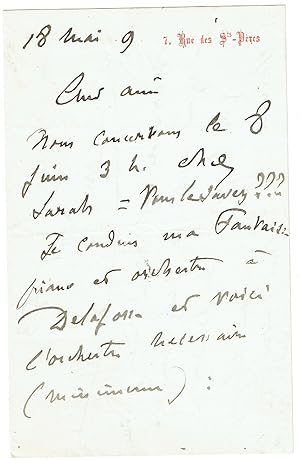 18 mai 9
7, Rue des Sts-Pères
Cher ami
Nous concertons le 8
Juin 3 h. chez
Sarah = Vous le savez ???
Je conduis ma Fantaisie
piano et orchestre à
Delafosse et voici
l'orchestre nécessaire
(minimum) :